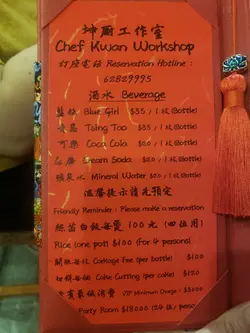 坤廚工作室
Chef Kwan Workshop
訂座電話 Reservation Hotline :
62829995
酒水 Beverage
藍妹 Blue Girl $35 / 1支(Bottle)
青島 Tsing Tao $35 / 1支(Bottle)
可樂 Coca Cola $20 / 1支(Bottle)
忌廉 Cream Soda $20 / 1支(Bottle)
礦泉水 Mineral Water $20 / 1支(Bottle)
溫馨提示請先預定
Friendly Reminder : Please make a reservation
絲苗白飯每煲 100元 (四位用)
Rice (one pot) $100 (For 4 persons)
開瓶每枝 Corkage Fee (per bottle) $100
切餅每個 Cake Cutting (per cake) $120
貴賓最低消費 VIP Minimum Charge $3000
Party Room $18000 (24位/ persons)